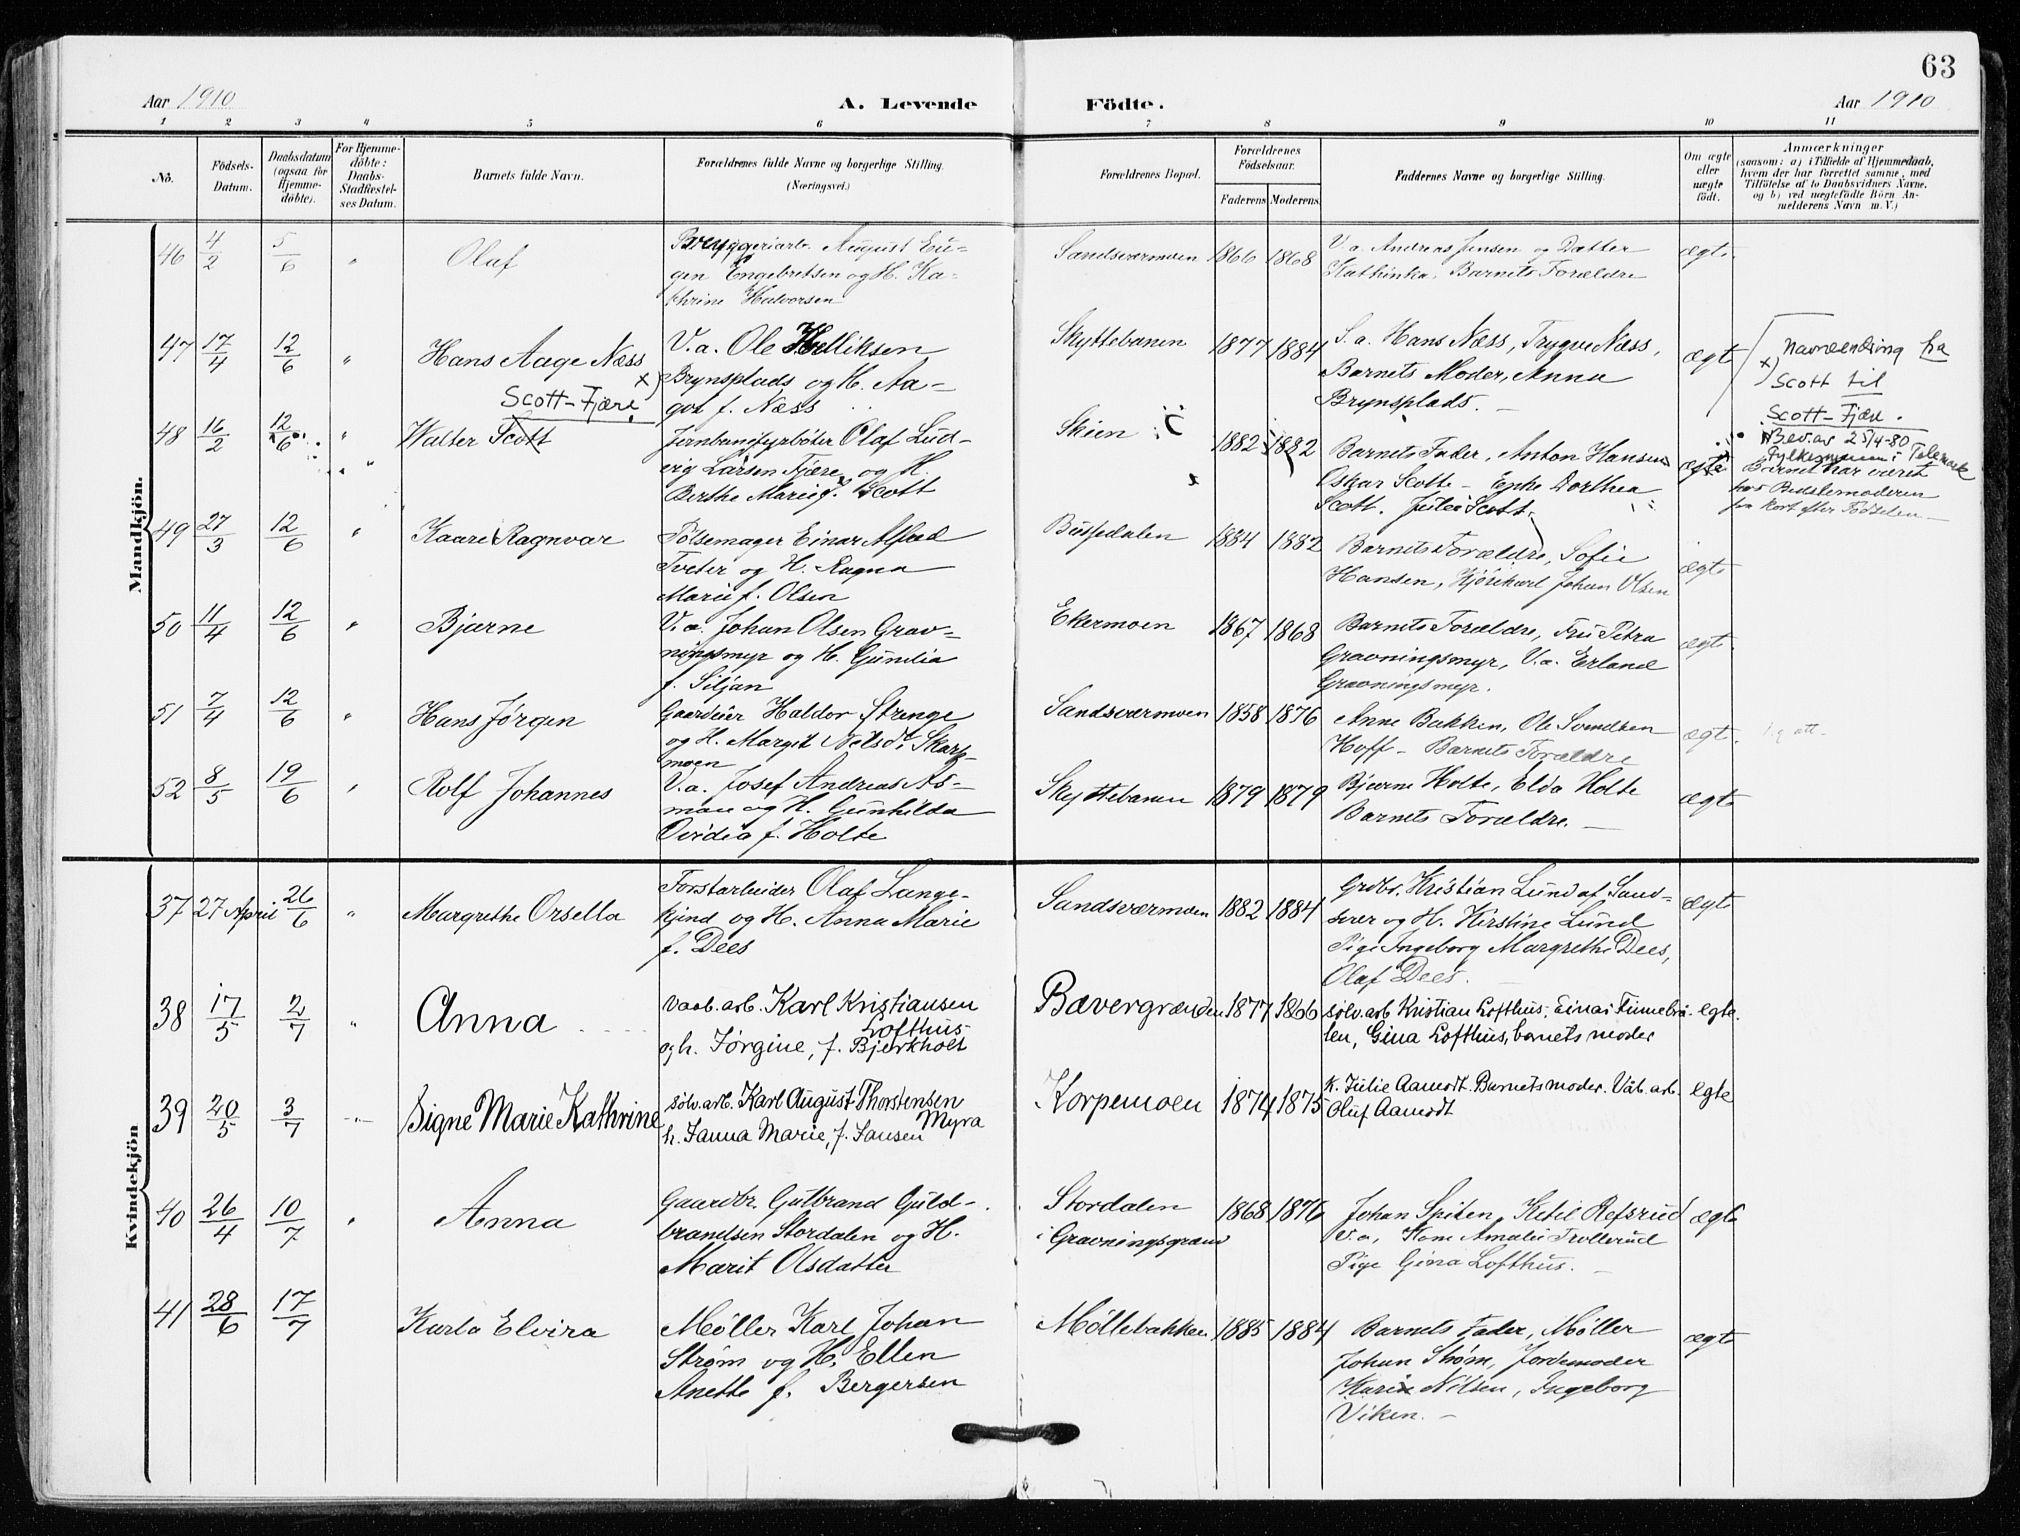 63
Aar 1910
A. Levende Födte.
Aar 1910
1 2 3 4 5 6 7 8 9 10 11
No.
Födsels-
Datum.
Daabsdatum
(ogsaa for
Hjemme-
döbte).
For Hjemme-
döbte:
Daabs-
Stadfæstel-
ses Datum.
Barnets fulde Navn.
Forældrenes fulde Navne og borgerlige Stilling.
(Næringsvei.)
Forældrenes Bopæl.
Forældrenes
Födselsaar.
Faderens. Moderens.
Faddernes Navne og borgerlige Stilling.
Om ægte
eller
uægte
födt.
Anmærkninger
(saasom: a) i Tilfælde af Hjemmedaab,
hvem der har forrettet samme, med
Tilföielse af to Daabsvidners Navne.
og b) ved uægtefödte Börn An-
melderens Navn m. V.)
Mandkjön.
46 4/2 5/6 " Olaf
Bryggeriarb. August Eu-
gen Engebretsen og H. Ka-
thrine Halvorsen
Sandsværmoen 1866 1868
V.a. Andreas Jensen og Datter
Kathinka, Barnets Forældre
ægte
47 17/4 12/6 " Hans Aage Næss
V.a. Ole Helliksen
Brynsplads og H. Aa-
got f. Næss
Skyttebanen 1877 1884
S.a. Hans Næss, Trygve Næss,
Barnets Moder, Anna
Brynsplads. —
ægte
x) Navneendring fra
Scott til
Scott-Fjære.
Bev. av 25/4-80
Fylkesmannen i Telemark
48 16/2 12/6 " Walter Scott
x) Scott-Fjære
Jernbanefyrbøter Olaf Lud-
vig Larsen Fjære og H.
Berthe Marie f. Scott
Skien 1882 1882
Barnets Fader, Anton Hansen
Oskar Scotte - Enke Dorthea
Scott. Julie Scott.
ægte
Barnet har været
hos Bedstemoderen
fra kort efter Fødselen —
49 27/3 12/6 " Kaare Ragnvar
Pølsemager Einar Alfred
Tveter og H. Ragna
Marie f. Olsen
Bussedalen 1884 1882
Barnets Forældre, Sofie
Hansen, Kjørekarl Johan Olsen
ægte
50 11/4 12/6 " Bjarne
V.a. Johan Olsen Grav-
ningsmyr og H. Gunilia
f. Siljan
Ekermoen 1867 1868
Barnets Forældre, Fru Petra
Gravningsmyr, V.a. Erland
Gravningsmyr.
ægte
51 7/4 12/6 " Hans Jørgen
Gaardeier Haldor Strenge
og H. Margit Nilsdt. Skarp-
moen
Sandsværmoen 1858 1876
Anne Bakken, Ole Svendsen
Hoff - Barnets Forældre
ægte
52 8/5 19/6 " Rolf Johannes
V.a. Josef Andreas As-
man og H. Gunhilda
Ovidia f. Holte
Skyttebanen 1879 1879
Bjarne Holte, Elda Holte
Barnets Forældre. —
ægte
Kvindekjön
37 27 April 26/6 " Margrethe Orsella
Forstarbeider Olaf Lange-
kjend og H. Anna Marie
f. Dees
Sandsværmoen 1882 1884
Grdbr. Kristian Lund af Sand-
svær og H. Kirstine Lund
Pige Ingeborg Margrethe Dees,
Olaf Dees. —
ægte
38 17/5 2/7 " Anna
vaab. arb. Karl Kristiansen
Lofthus
og h. Jørgine, f. Bjerkholt
Bævergrænden 1877 1866
sølv. arb Kristian Lofthus, Einar Finnebrå-
ten, Gina Lofthus, barnets moder
egte.
39 20/5 3/7 " Signe Marie Kathrine
sølv. arb. Karl August Thorstensen
Myra
h. Janna Marie, f. Jansen
Korpemoen 1874 1875
K. Julie Aamodt. Barnets moder. Våb. arb.
Oluf Aamodt
egte
40 26/4 10/7 " Anna
Gaardbr. Gutbrand Guld-
brandsen Stordalen og H.
Marit Olsdatter
Stordalen
i Gravningsgrænd
1868 1876
Johan Spiten, Ketil Refsrud
V.a., Kone Amalie Trollerud
Pige Gina Lofthus. —
ægte
41 28/6 17/7 Karla Elvira
Møller Karl Johan
Strøm og H. Ellen
Anette f. Bergersen
Møllebakken 1885 1884
Barnets Fader, Møller
Johan Strøm, Jordemoder
Karin Nilsen, Ingeborg
Viken. —
ægte